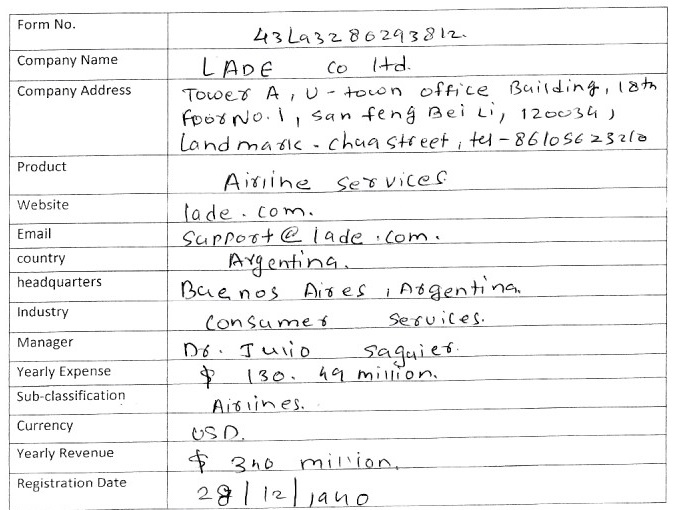 Form No. 43La93286293812.
Company Name LADE Co ltd.
Company Address Tower A, U-town office Building, 18th
floor No.1, san feng Bei Li, 120034,
Landmark - chaa street, tel - 8610562 3210
Product Airline services
Website lade.com.
Email support@lade.com.
country Argentina.
headquarters Buenos Aires, Argentina.
Industry Consumer Services.
Manager Dr. Julio saguier.
Yearly Expense $ 130.49 million.
Sub-classification Airlines.
Currency USD.
Yearly Revenue $ 340 million.
Registration Date /12/1940